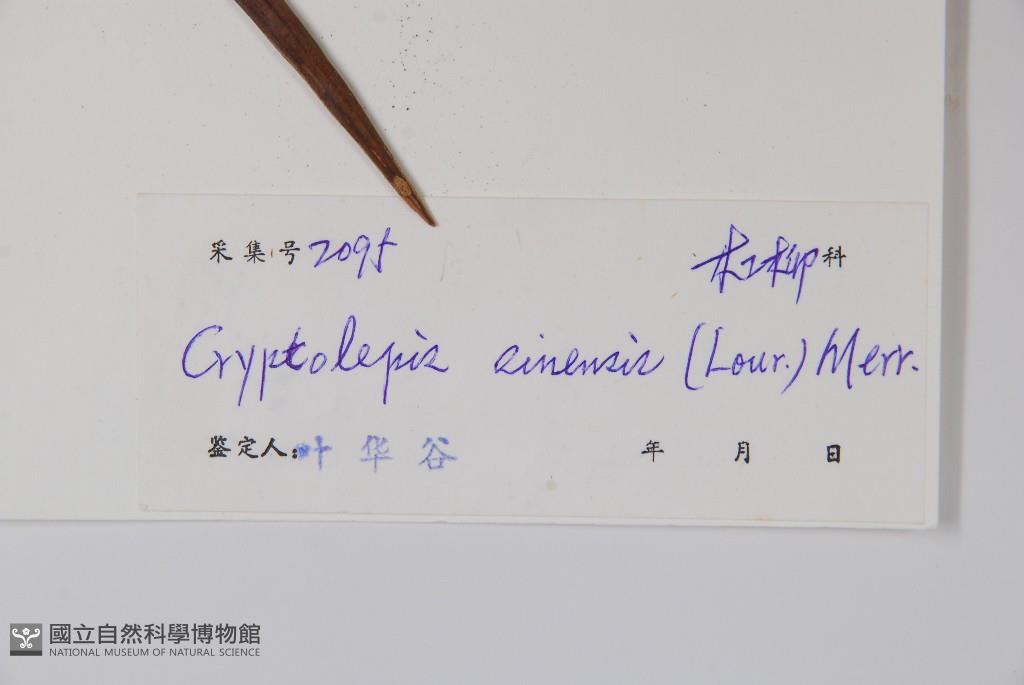 采集号 2095 杠柳科
Cryptolepis sinensis (Lour.) Merr.
鉴定人: 叶华谷 年 月 日
國立自然科學博物館
NATIONAL MUSEUM OF NATURAL SCIENCE